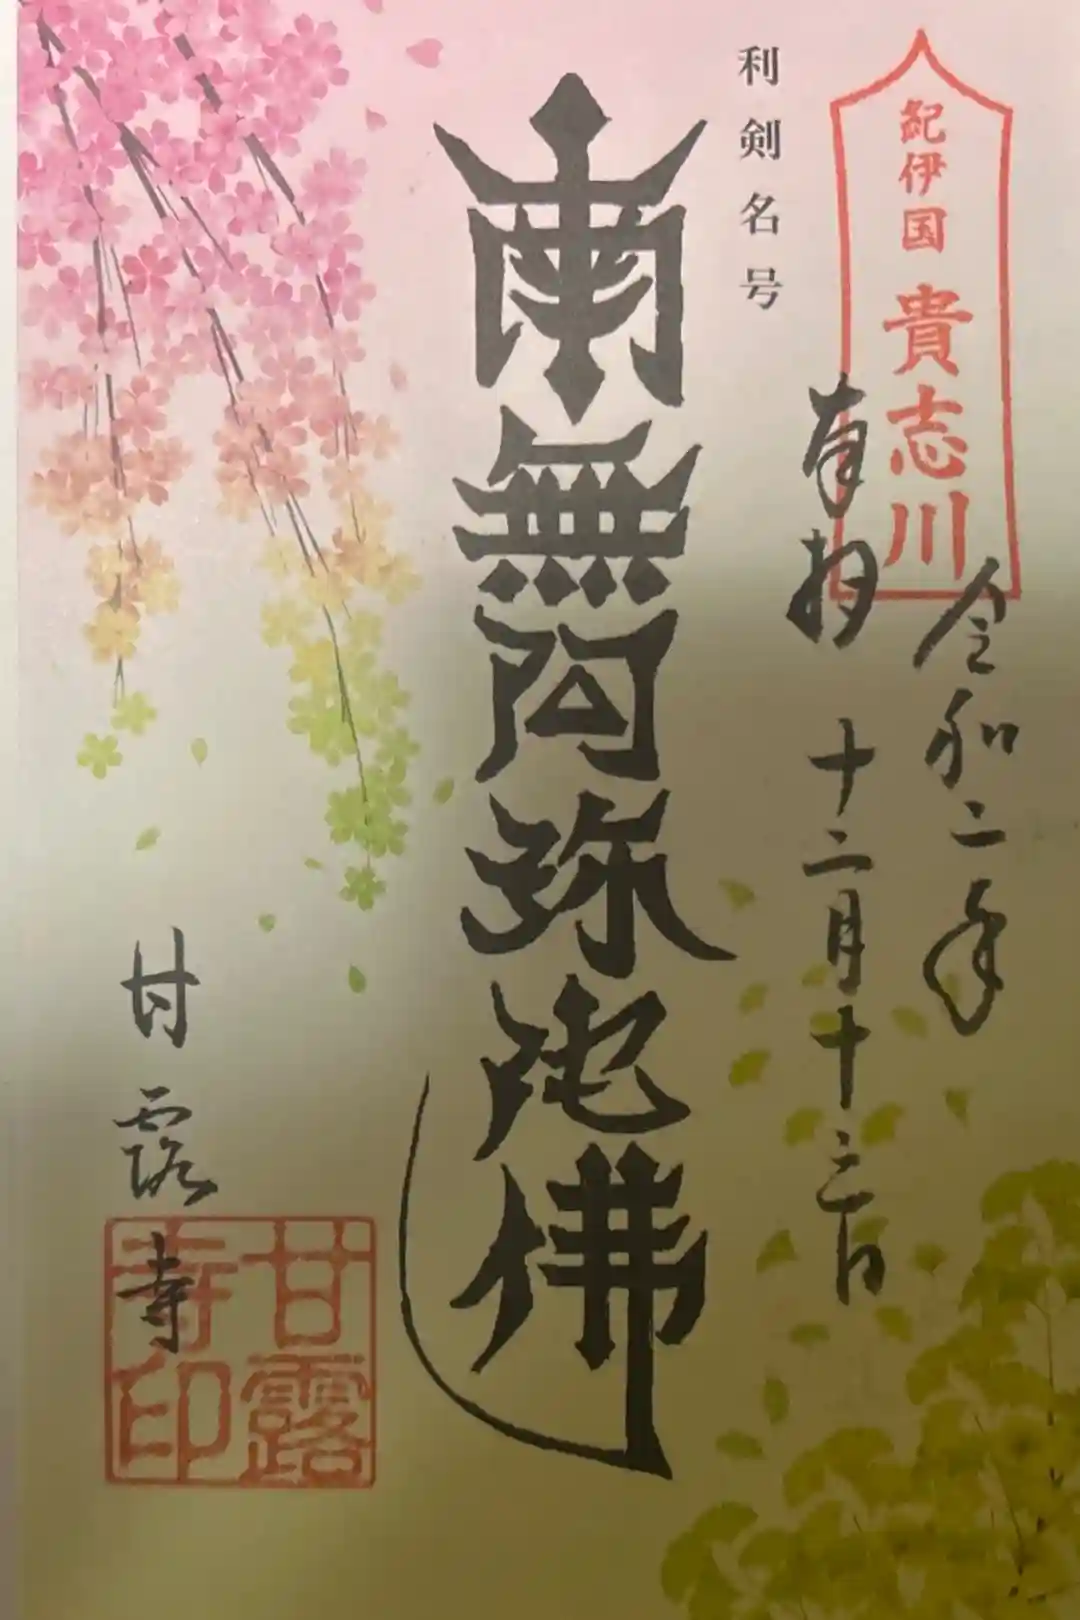 紀伊国 貴志川
令和二年
奉拝 十二月十三日
利剣名号
南無阿弥陀佛
甘露寺
甘露
寺印